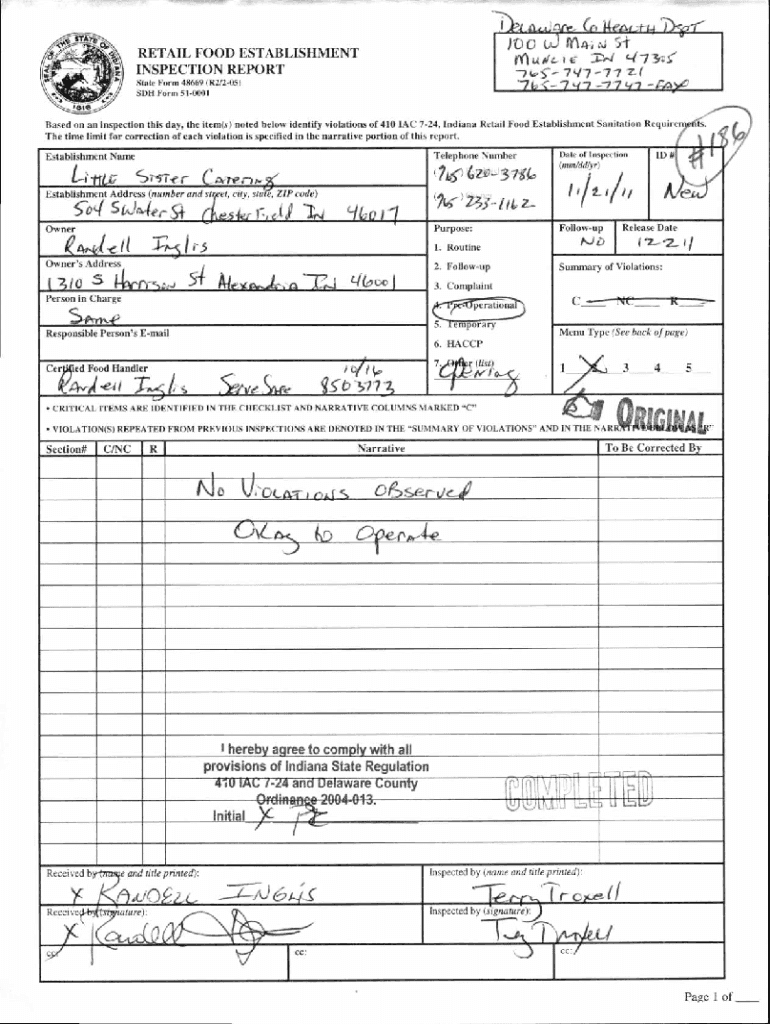 Delaware Co Health Dept
100 W Main St
Muncie IN 47305
765-747-7721
765-747-7747-FAX
RETAIL FOOD ESTABLISHMENT
INSPECTION REPORT
State Form 48669 (R2/2-05)
SDH Form 51-0001
SEAL OF THE STATE OF INDIANA
1816
Based on an inspection this day, the item(s) noted below identify violations of 410 IAC 7-24, Indiana Retail Food Establishment Sanitation Requirements.
The time limit for correction of each violation is specified in the narrative portion of this report.
#186
Establishment Name
Little Sister Catering
Telephone Number
(765) 620-3786
765 233-1162
Date of Inspection
(mm/dd/yr)
11/21/11
ID #
New
Establishment Address (number and street, city, state, ZIP code)
504 S Water St Chesterfield IN 46017
Owner
Randell Inglis
Owner's Address
1310 S Harrison St Alexandria IN 46001
Person in Charge
Same
Responsible Person's E-mail
Certified Food Handler
Randell Inglis Serve Safe 10/16 8503773
Purpose:
1. Routine
2. Follow-up
3. Complaint
4. Pre-Operational
5. Temporary
6. HACCP
7. Other (list)
Opening
Follow-up
NO
Release Date
12-2-11
Summary of Violations:
C NC R
Menu Type (See back of page)
1 X 3 4 5
• CRITICAL ITEMS ARE IDENTIFIED IN THE CHECKLIST AND NARRATIVE COLUMNS MARKED "C"
ORIGINAL
• VIOLATION(S) REPEATED FROM PREVIOUS INSPECTIONS ARE DENOTED IN THE "SUMMARY OF VIOLATIONS" AND IN THE NARRATIVE "R"
Section# C/NC R Narrative To Be Corrected By
No Violations Observed
Okay to Operate
I hereby agree to comply with all
provisions of Indiana State Regulation
410 IAC 7-24 and Delaware County
Ordinance 2004-013.
Initial X
COMPLETED
Received by (name and title printed):
X RANDELL INGLIS
Inspected by (name and title printed):
Terry Troxell
Received by (signature):
X Randell
Inspected by (signature):
Troxell
cc: cc: cc:
Page 1 of